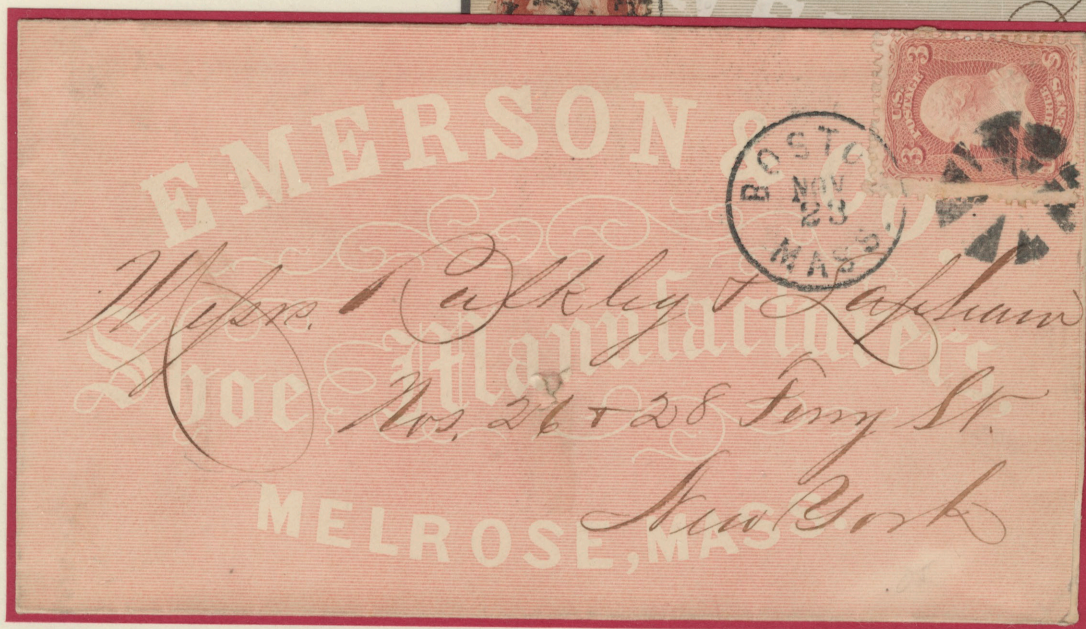 EMERSON & CO.
Shoe Manufacturers.
MELROSE, MASS.
BOSTON
NOV
23
MASS.
U.S. POSTAGE
3
3
Messrs. & Lapham
Nos. 26 & 28 Ferry St.
New York